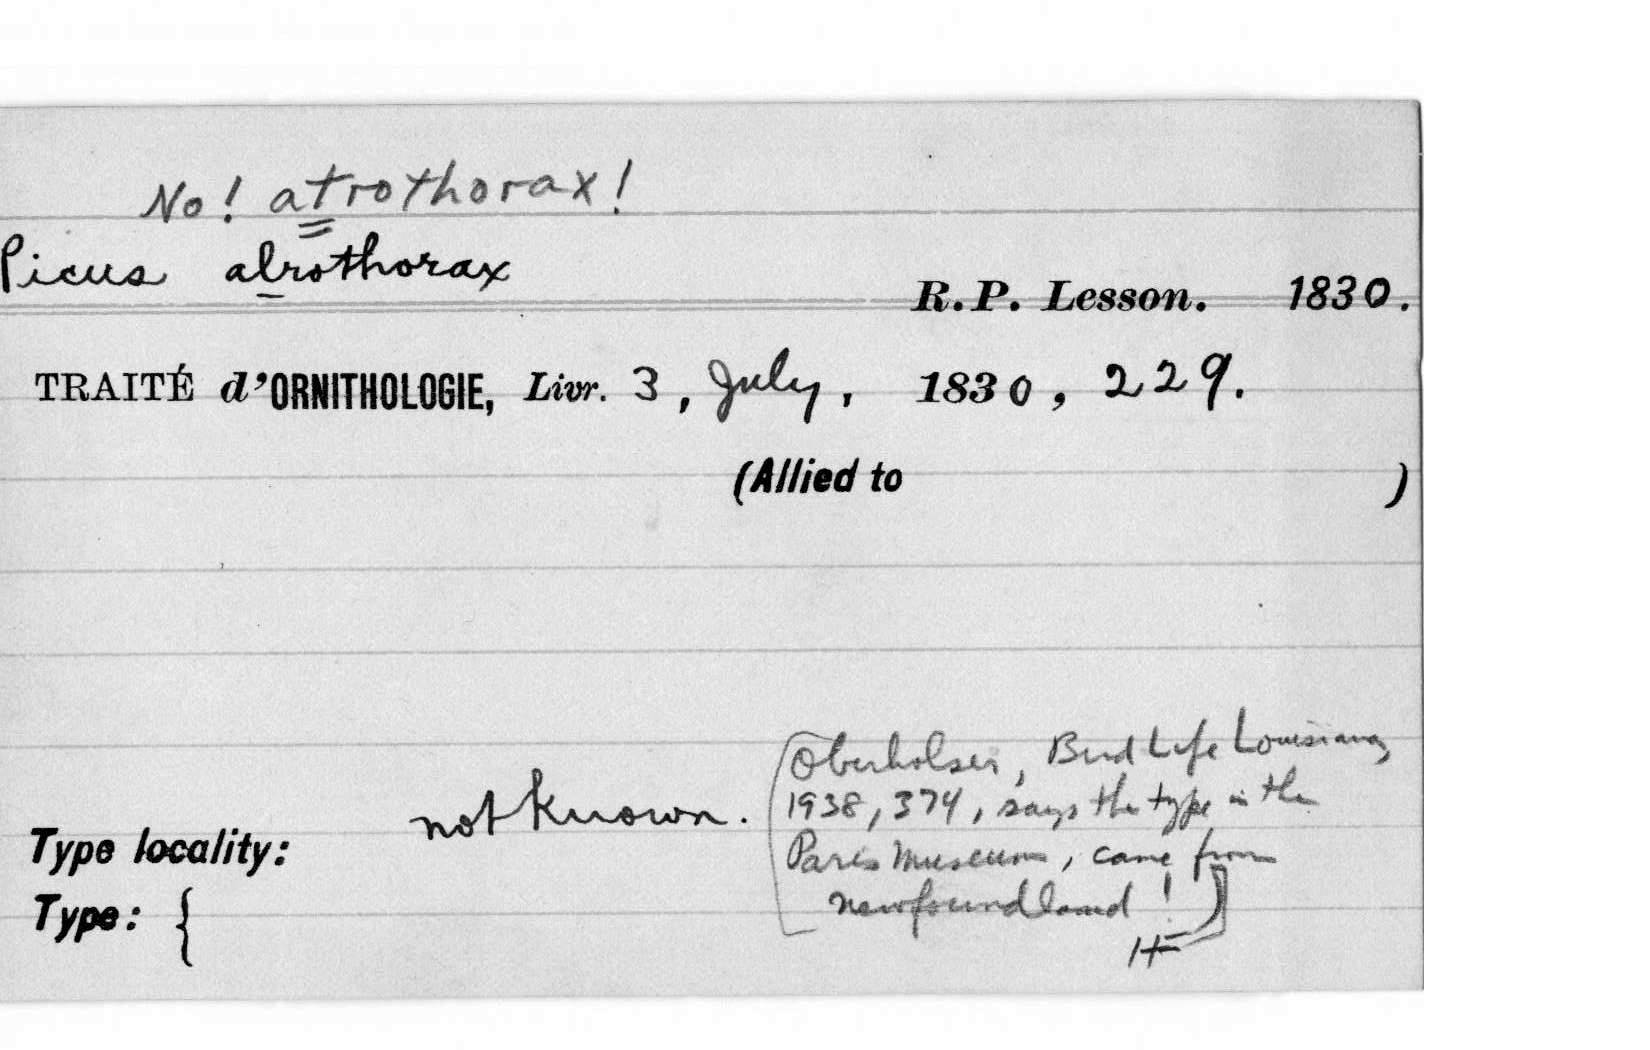 No! atrothorax!
Picus alrothorax
R.P. Lesson. 1830.
TRAITÉ d'ORNITHOLOGIE, Livr. 3, July, 1830, 229.
(Allied to )
Oberholser, Bird Life Louisiana,
1938, 374, says the type in the
not known.
Paris Museum, came from
Type locality:
newfoundland!
Type: {
H